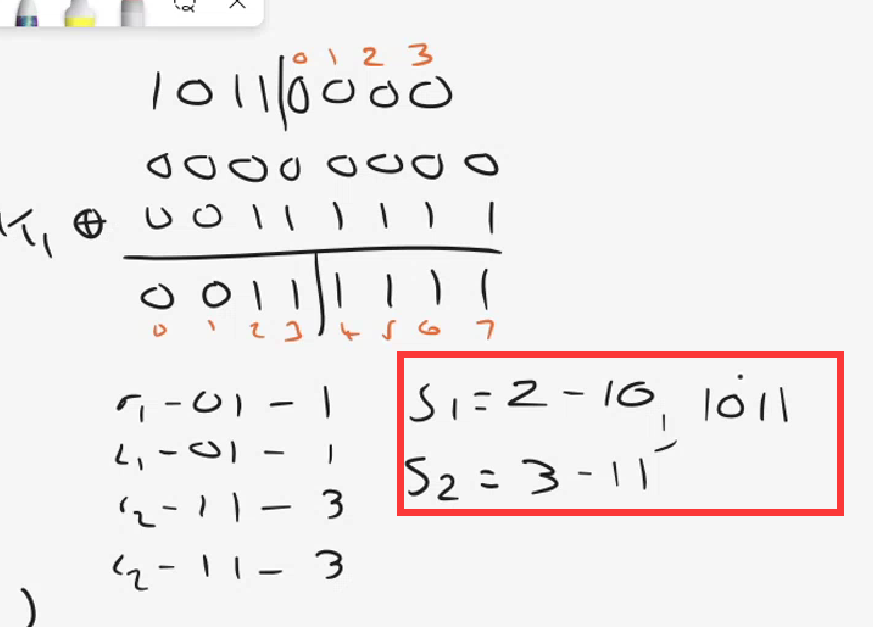 0 1 2 3
1011|0000
0000 0000
K1 ⊕ 0011 1111
0011|1111
0 1 2 3 4 5 6 7
r1 - 01 - 1
c1 - 01 - 1
r2 - 11 - 3
c2 - 11 - 3
S1 = 2 - 10, 1011
S2 = 3 - 11
)